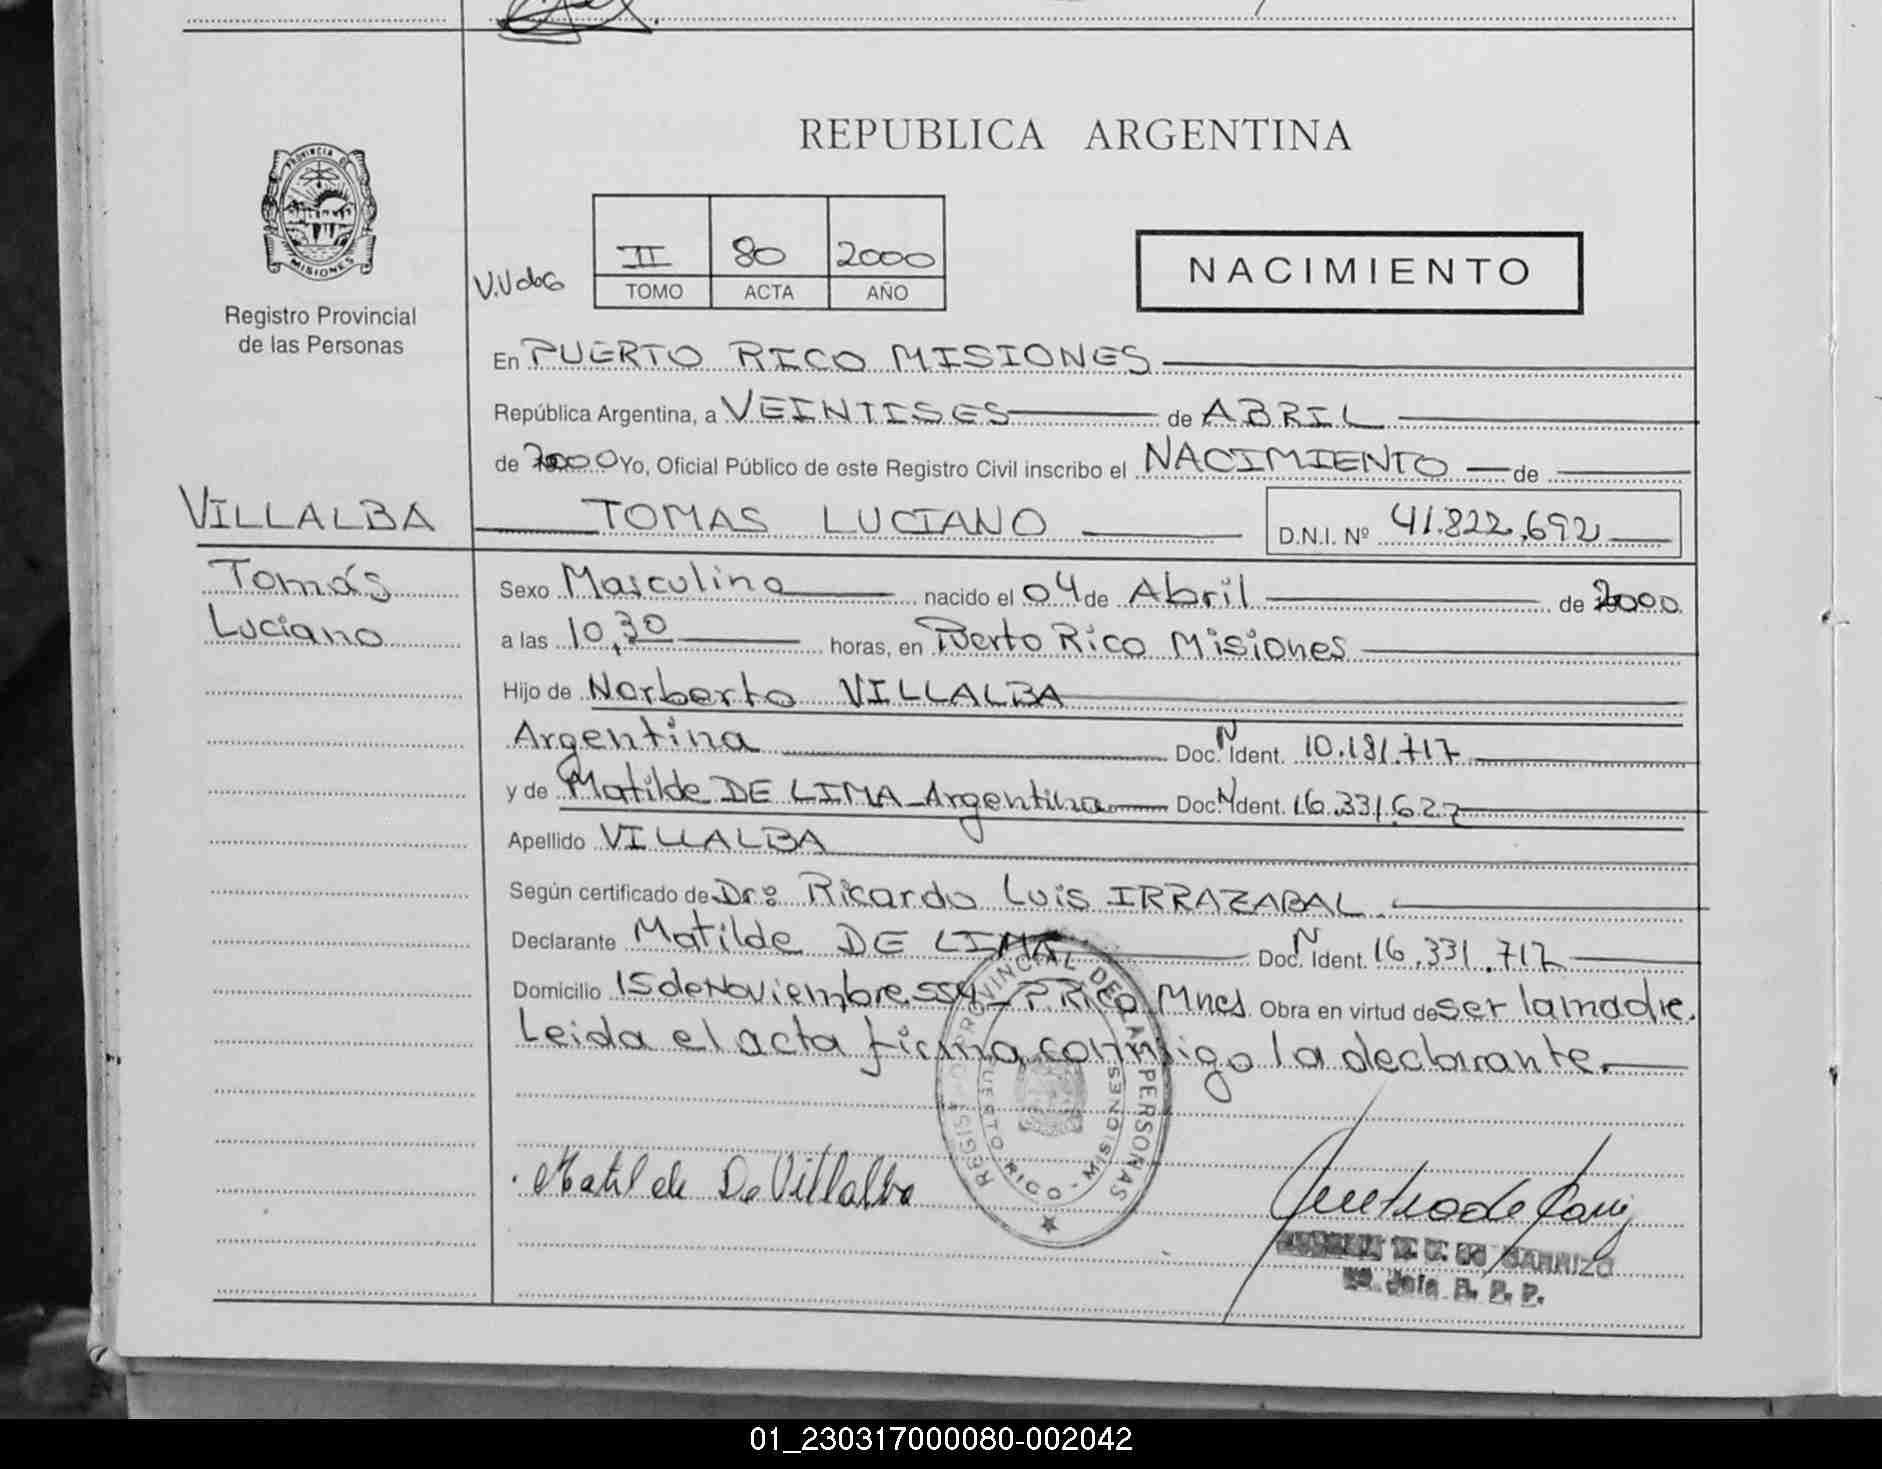 REPUBLICA ARGENTINA
PROVINCIA DE
MISIONES
Registro Provincial
de las Personas
II 80 2000
TOMO ACTA AÑO
NACIMIENTO
En PUERTO RICO MISIONES
República Argentina, a VEINTISES de ABRIL
de 2000 Yo, Oficial Público de este Registro Civil inscribo el NACIMIENTO de
VILLALBA
TOMAS LUCIANO D.N.I. Nº 41.822.692
Tomás
Luciano
Sexo Masculino nacido el 04 de Abril de 2000
a las 10,30 horas, en Puerto Rico Misiones
Hijo de Norberto VILLALBA
Argentina Doc. N Ident. 10.181.717
y de Matilde DE LIMA - Argentina Doc. N Ident. 16.331.627
Apellido VILLALBA
Según certificado de Dr: Ricardo Luis IRRAZABAL
Declarante Matilde DE LIMA Doc. N Ident. 16.331.717
Domicilio 15 de Noviembre 554 - P. Rico Mnes Obra en virtud de ser la madre.
Leida el acta firma conmigo la declarante.
REGISTRO PROVINCIAL DE LAS PERSONAS
PUERTO RICO - MISIONES
Matilde De Villalba
DE CARRIZO
Jefe R. P. P.
01_230317000080-002042